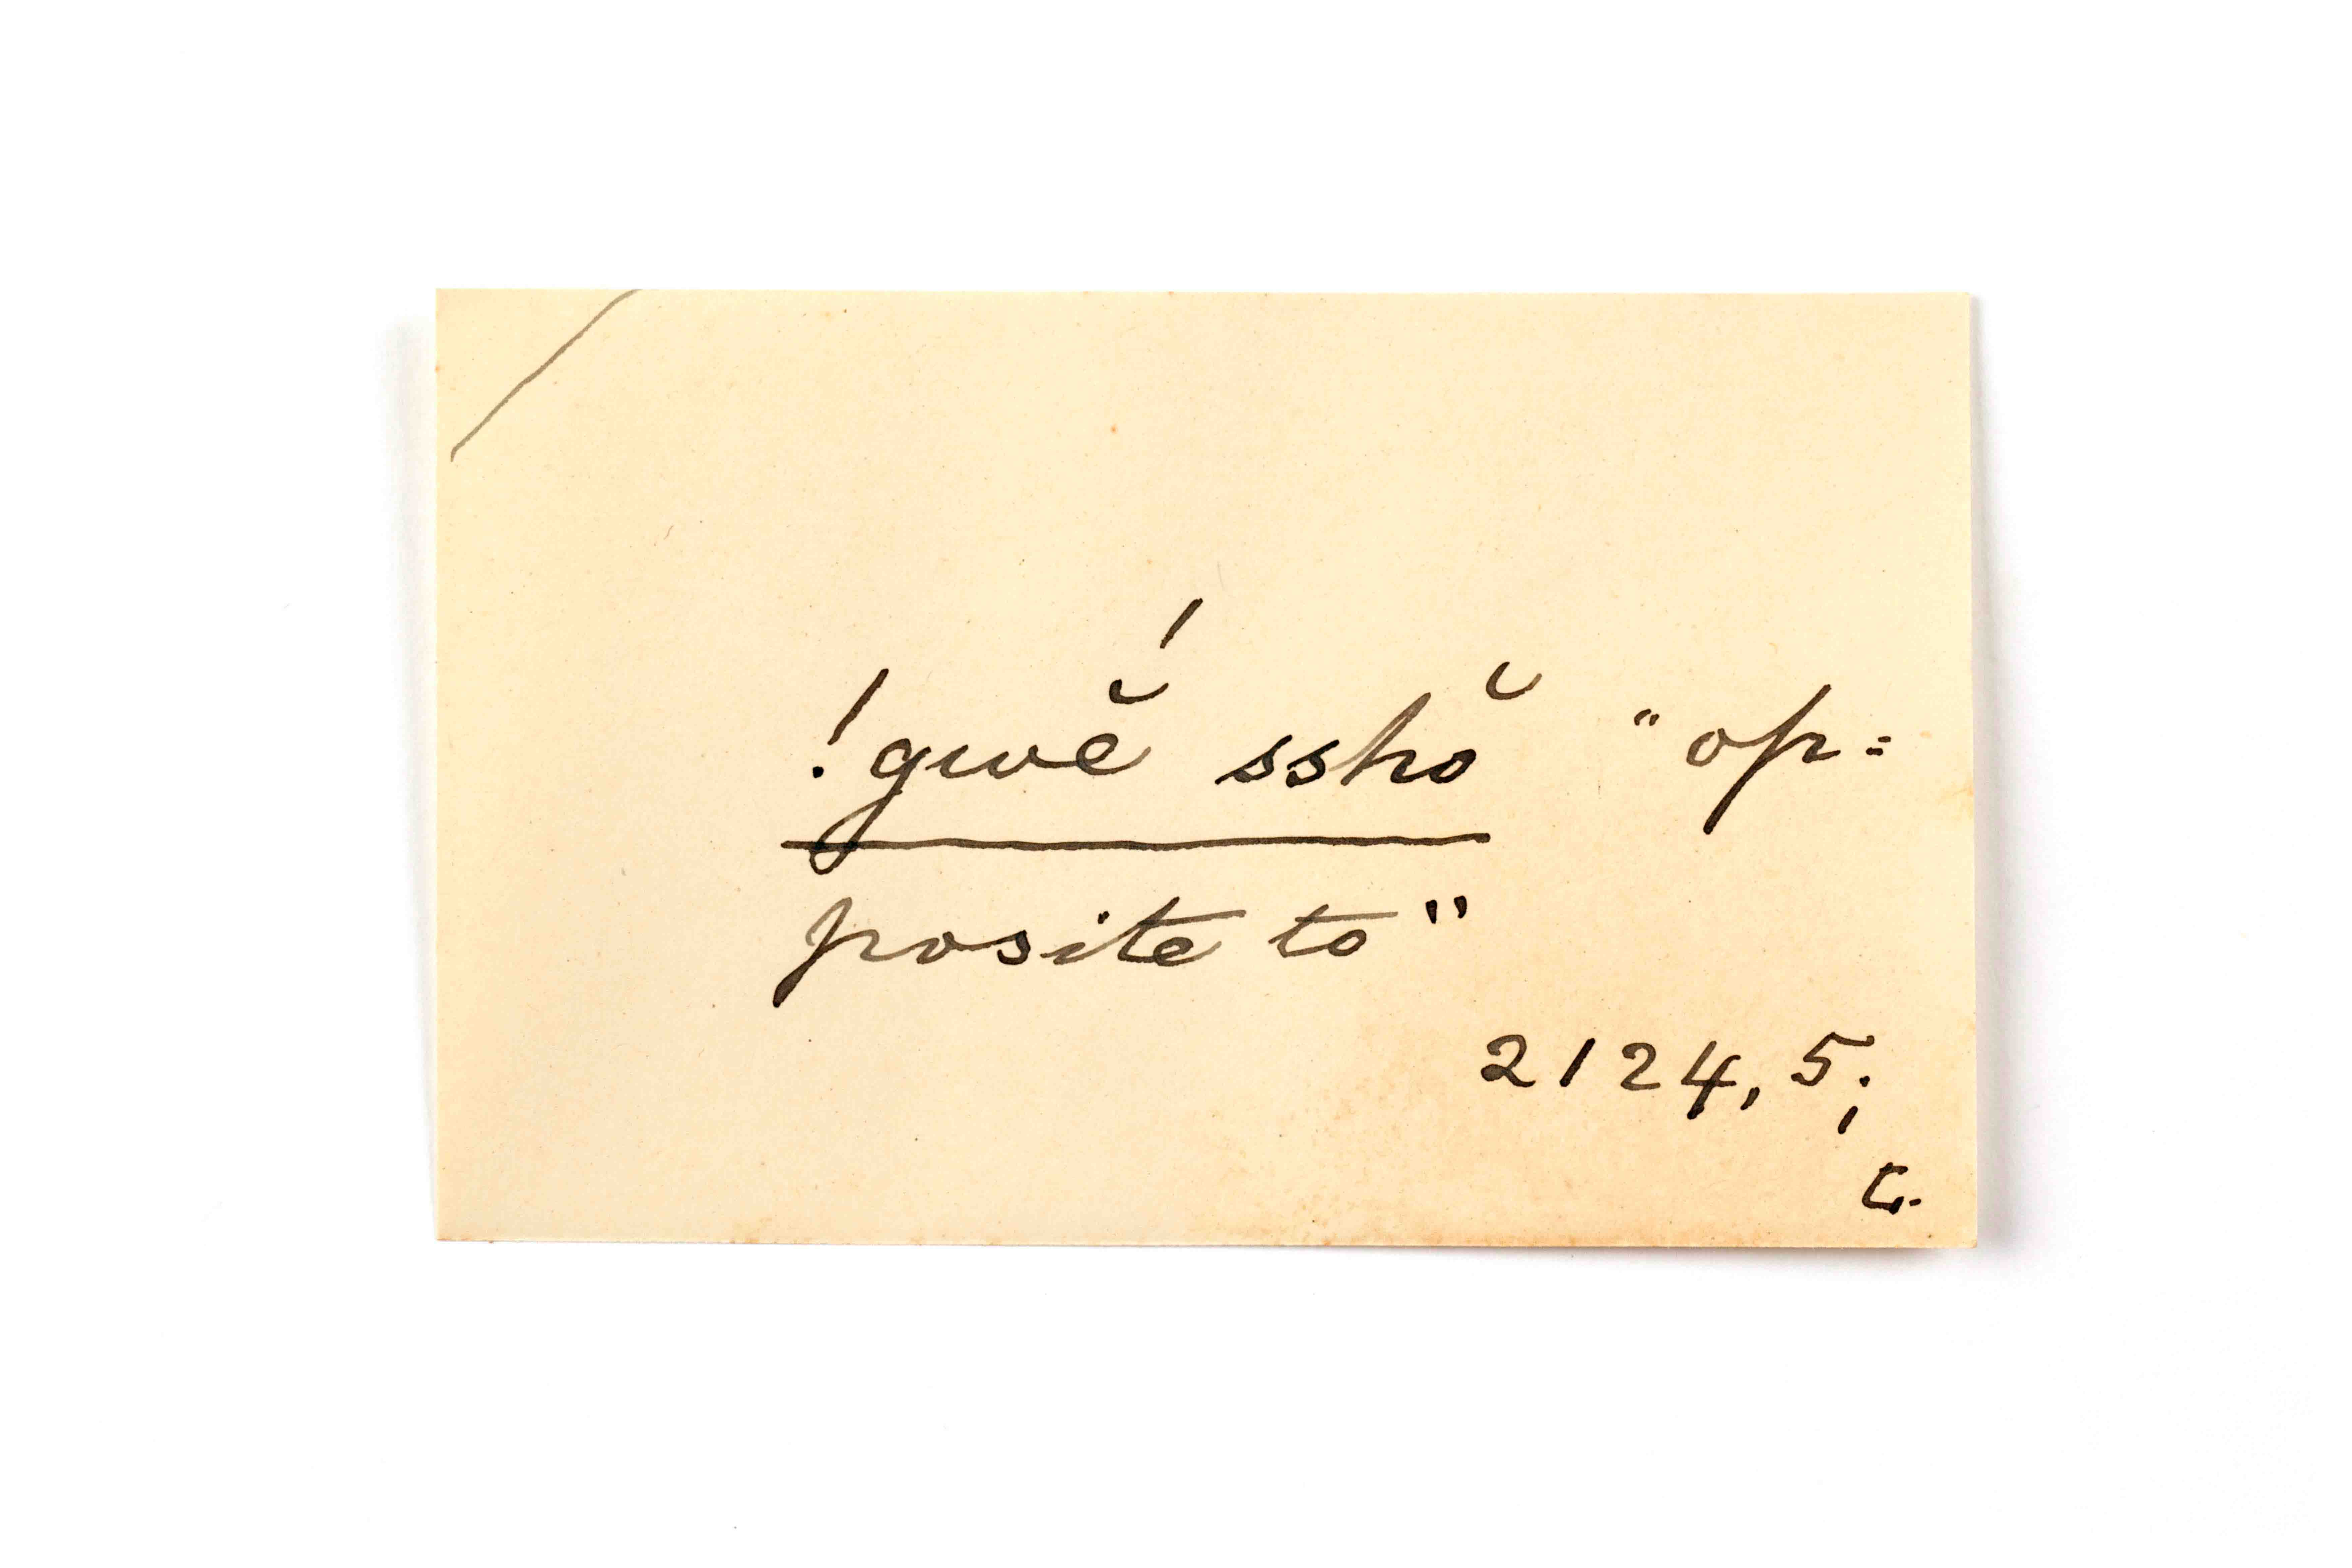 !gwĕ́ sshŏ "op=
posite to"
2124, 5;